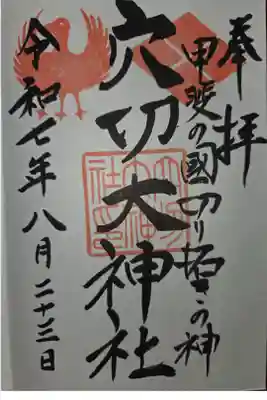 奉拝
甲斐の國切り の神
穴切大神社
令和七年八月二十三日